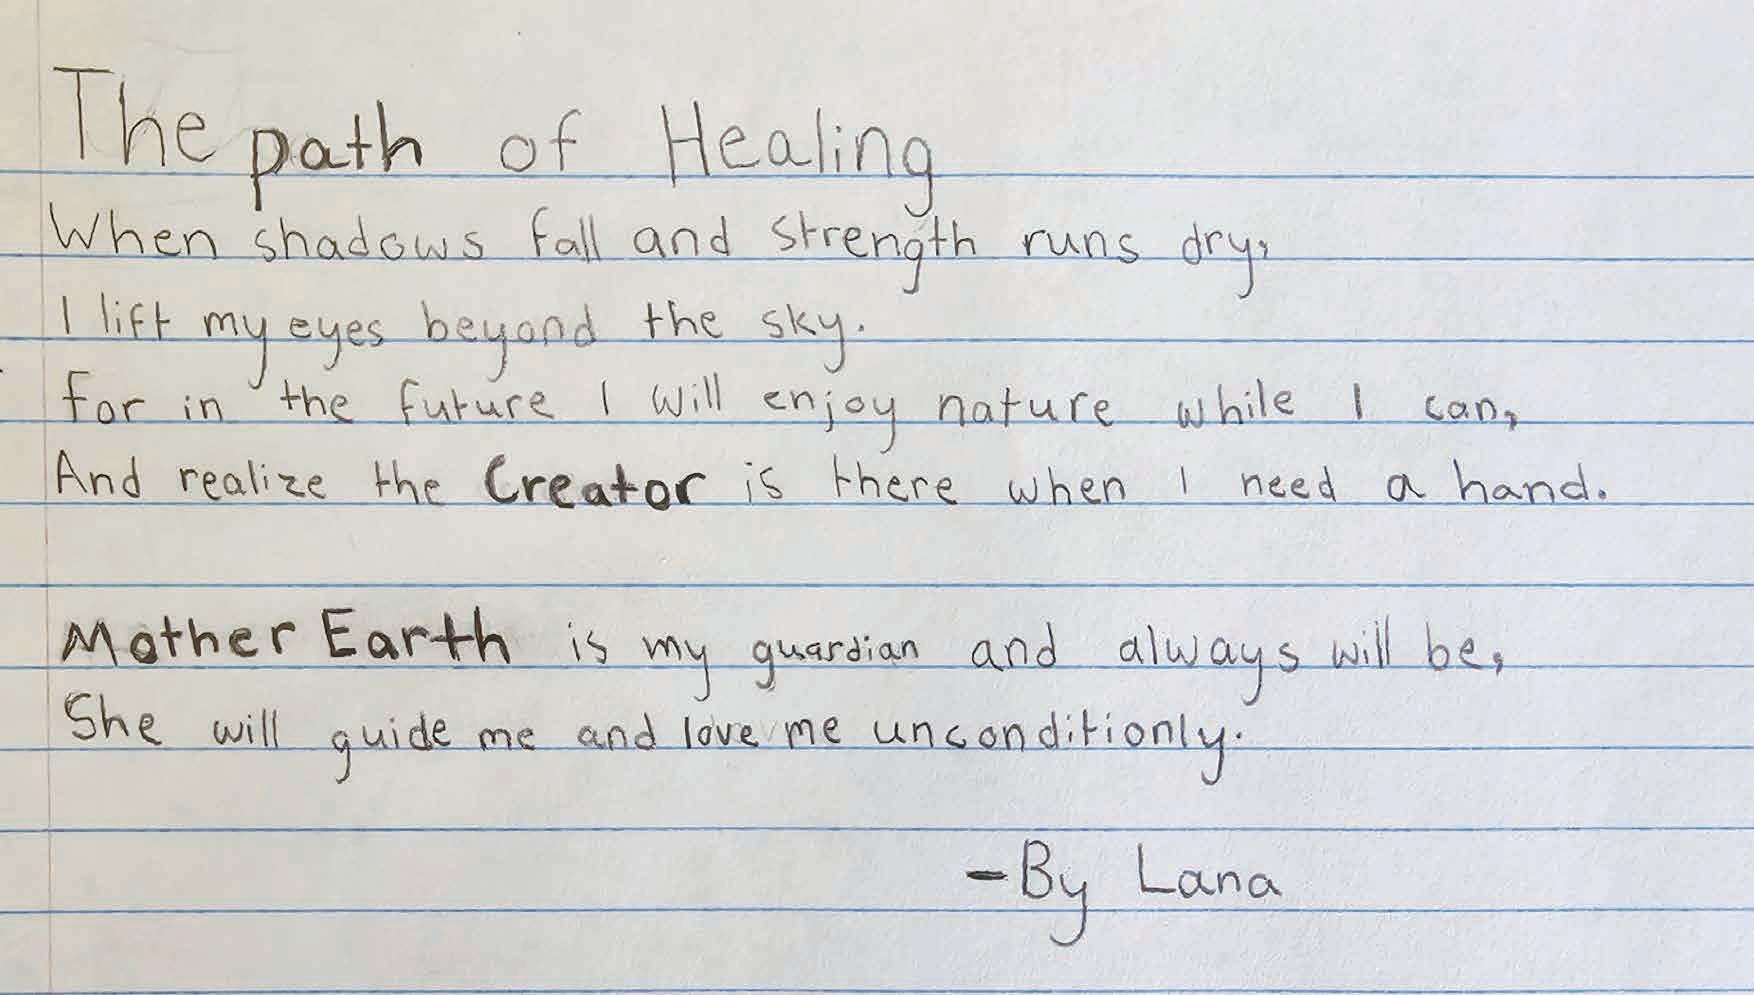 The path of Healing
When shadows fall and strength runs dry,
I lift my eyes beyond the sky.
For in the future I will enjoy nature while I can,
And realize the Creator is there when I need a hand.
Mother Earth is my guardian and always will be,
She will guide me and love me unconditionly.
-By Lana